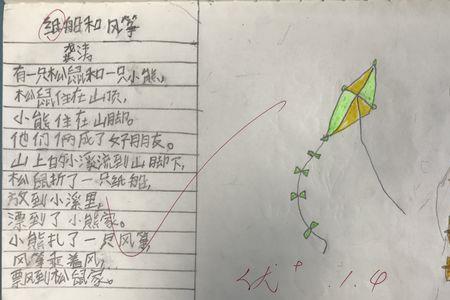 纸船和风筝
龚涛
有一只松鼠和一只小熊,
松鼠住在山顶,
小熊住在山脚。
他们俩成了好朋友。
山上的小溪流到山脚下,
松鼠折了一只纸船,
放到小溪里,
漂到了小熊家。
小熊扎了一只风筝,
风筝乘着风,
飘到松鼠家。
优+ 1.4